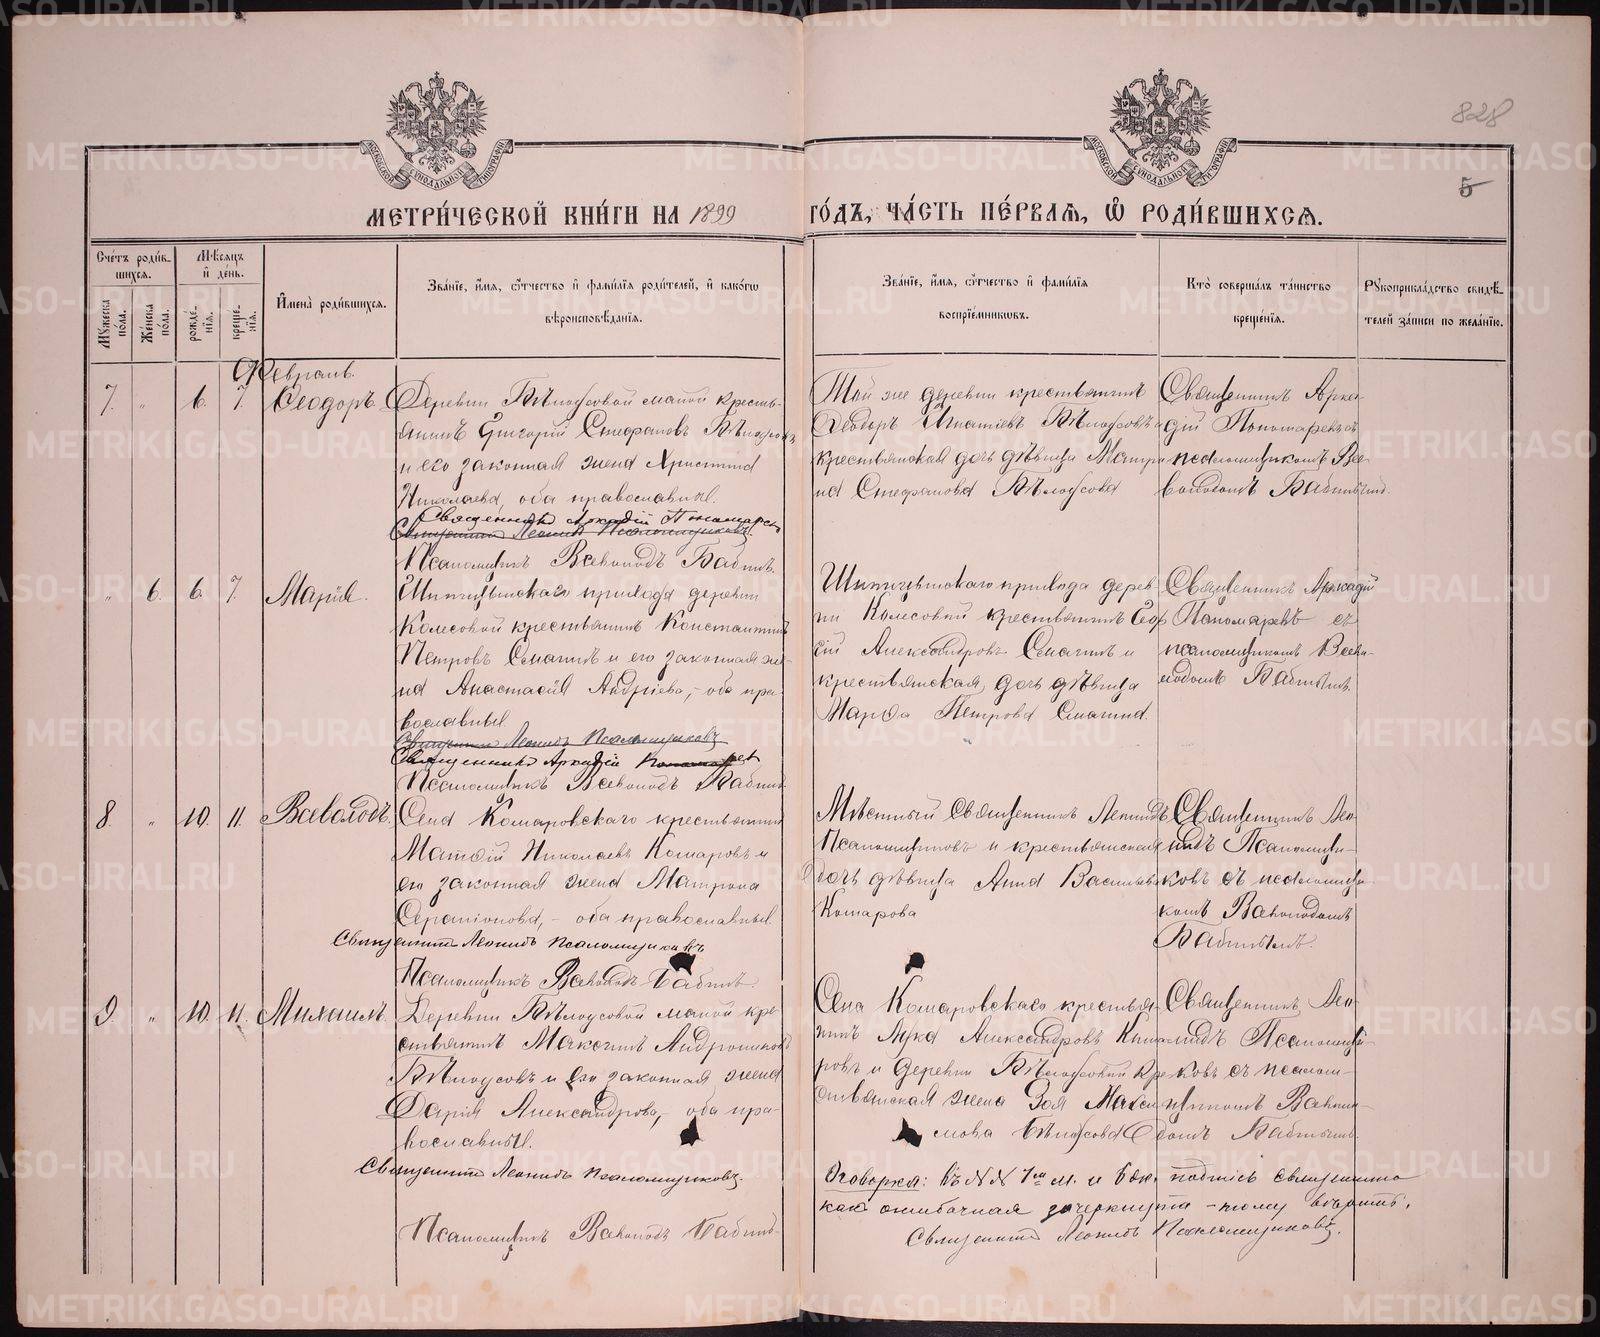 828
5
МЕТРИ́ЧЕСКОЙ КНИ́ГИ НА 1899 ГО́ДЪ, ЧА́СТЬ ПЕ́РВАѦ, Ѡ҆ РОДИ́ВШИХСѦ.
Сче́тъ роди́в-
шихся.
Мꙋ́жеска по́ла.
Же́нска по́ла.
Мѣ́сяцъ
и҆ де́нь.
рожде́-
нїя.
креще́-
нїя.
И҆мена̀ роди́вшихся.
Зва́нїе, и҆́мя, ѻ҆́тчество и҆ фами́лїя роди́телей, и҆ како́гѡ
вѣроисповѣ́данїя.
Зва́нїе, и҆́мя, ѻ҆́тчество и҆ фами́лїя
воспрїе́мникѡвъ.
Кто̀ соверша́лъ та́инство
креще́нїя.
Рꙋкоприкла́дство свидѣ́-
телей за́писи по жела́нїю.
Февраль
7. " 6. 7. Ѳеодоръ.
Деревни Бѣлоусовой малой кресть-
янинъ Григорій Стефановъ Бѣлоусовъ
и его законная жена Христина
Николаева, оба православные.
Священникъ Аркадій Пономаревъ
Священникъ Леонидъ Псаломщиковъ.
Псаломщикъ Всеволодъ Бабинъ.
Той же деревни крестьянинъ
Ѳеодоръ Игнатіевъ Бѣлоусовъ и
крестьянская дочь дѣвица Матро
на Стефанова Бѣлоусова
Священникъ Арка-
дій Пономаревъ съ
псаломщикомъ Все-
володомъ Бабинымъ.
" 6. 6. 7. Марія.
прихода деревни
Колесовой крестьянинъ Константинъ
Петровъ Смагинъ и его законная же-
на Анастасія Андріева, - оба пра-
вославные.
Священникъ Леонидъ Псаломщиковъ
Священникъ Аркадій Пономарев
Псаломщикъ Всеволодъ Бабинъ
прихода дерев
ни Колесовой крестьянинъ Геор
гій Александровъ Смагинъ и
крестьянская дочь дѣвица
Марѳа Петрова Смагина.
Священникъ Аркадій
Пономаревъ съ
псаломщикомъ Всево-
лодомъ Бабинымъ.
8. " 10. 11. Всеволодъ.
Села Комаровскаго крестьянинъ
Матѳій Николаевъ Комаровъ и
его законная жена Матрона
Серапіонова, - оба православные
Священникъ Леонидъ Псаломщиковъ
Псаломщикъ Всеволодъ Бабинъ
Мѣстный Священникъ Леонидъ
Псаломщиковъ и крестьянская
дочь дѣвица Анна Васильева
Комарова
Священникъ Лео-
нидъ Псаломщи-
ковъ съ псаломщи
комъ Всеволодомъ
Бабинымъ.
9. " 10. 11. Михаилъ.
Деревни Бѣлоусовой малой кре-
стьянинъ Андрониковъ
Бѣлоусовъ и его законная жена
Дарія Александрова, - оба пра-
вославные.
Священникъ Леонидъ Псаломщиковъ.
Псаломщикъ Всеволодъ Бабинъ
Села Комаровскаго крестья-
нинъ Лука Александровъ Кома
ровъ и деревни Бѣлоусовой кре
стьянская жена Зоя Макси
мова Бѣлоусова
Священникъ Лео-
нидъ Псаломщи-
ковъ съ псалом-
щикомъ Всево-
лодомъ Бабинымъ.
Оговорка: въ №№ 7 м. и 6 ж. подпись священника
какъ ошибочная зачеркнута - тому вѣрить.
Священникъ Леонидъ Псаломщиковъ.